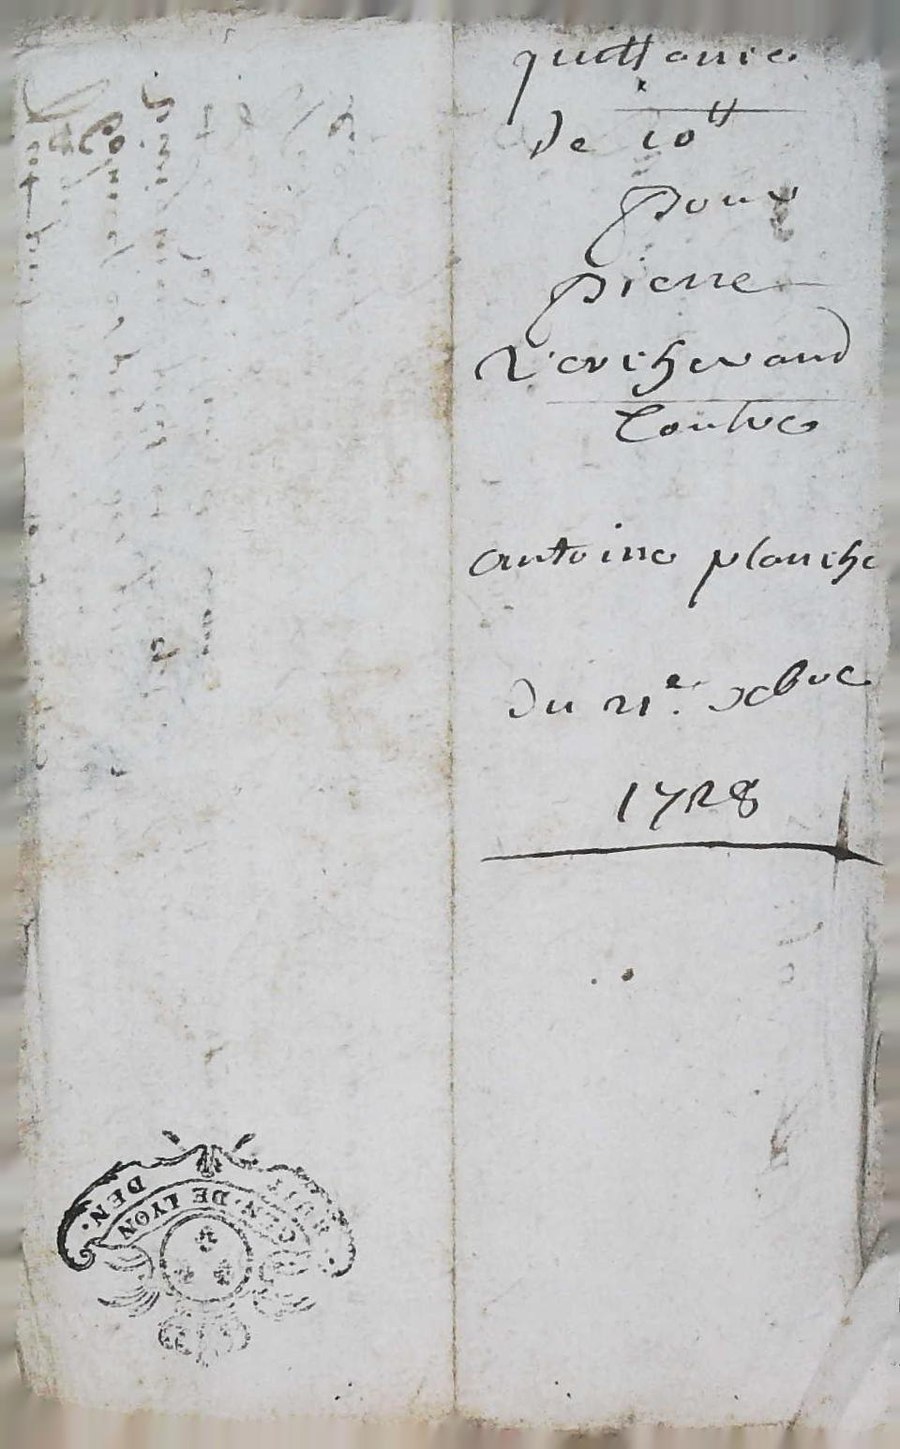 quittance
De 10ᵗᵗ
pour
pierre
Larchevaud
Contre
antoine planche
du 21ᵉ. xbre
1728
GEN. DE LYON
DEN.